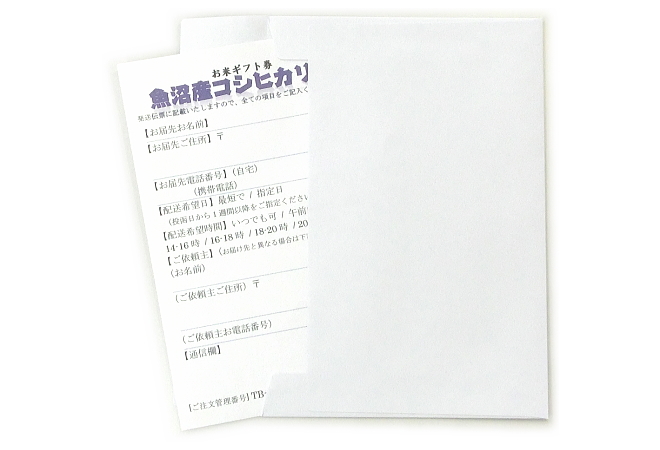 お米ギフト券
魚沼産コシヒカリ
発送伝票に記載いたしますので、全ての項目をご記入く
【お届先お名前】
【お届先ご住所】〒
【お届先電話番号】(自宅)
(携帯電話)
【配送希望日】最短で / 指定日
(投函日から1週間以降をご指定ください
【配送希望時間】いつでも可 / 午前
14-16時 / 16-18時 / 18-20時 / 20
【ご依頼主】(お届け先と異なる場合は下
(お名前)
(ご依頼主ご住所) 〒
(ご依頼主お電話番号)
【通信欄】
【ご注文管理番号】TB-